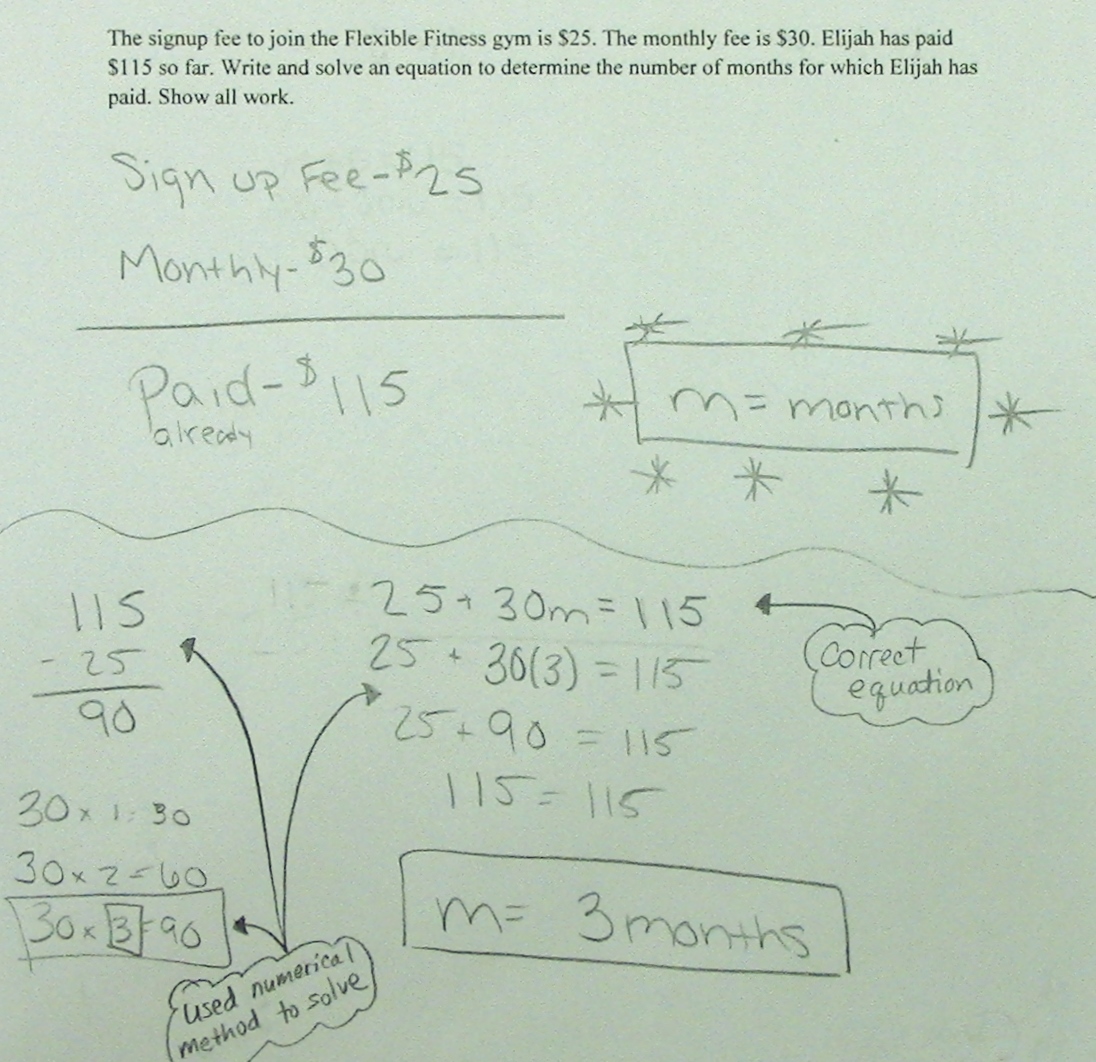 The signup fee to join the Flexible Fitness gym is $25. The monthly fee is $30. Elijah has paid
$115 so far. Write and solve an equation to determine the number of months for which Elijah has
paid. Show all work.
Sign up Fee-$25
Monthly-$30
Paid-$115
already
m= months
115
- 25
90
30 x 1= 30
30 x 2=60
30 x 3=90
25 + 30m = 115
25 + 30(3) = 115
25 + 90 = 115
115 = 115
m= 3 months
Correct
equation
used numerical
method to solve